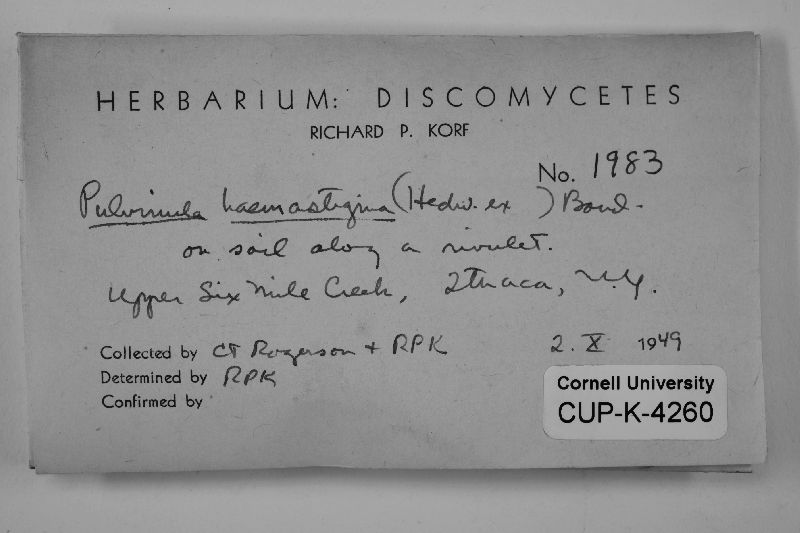 HERBARIUM: DISCOMYCETES
RICHARD P. KORF
No. 1983
Pulvinula haemastigma (Hedw. ex ) Boud.
on soil along a rivulet.
Upper Six Mile Creek, Ithaca, N.Y.
Collected by CT Rogerson + RPK 2. X 1949
Determined by RPK
Confirmed by
Cornell University
CUP-K-4260